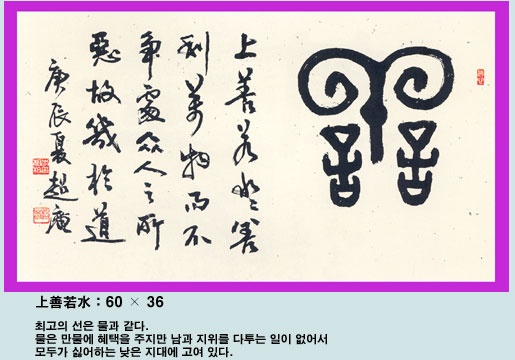 譱
上善若水善
利萬物而不
爭處衆人之所
惡故幾於道
庚辰夏超庵
上善若水 : 60 × 36
최고의 선은 물과 같다.
물은 만물에 혜택을 주지만 남과 지위를 다투는 일이 없어서
모두가 싫어하는 낮은 지대에 고여 있다.